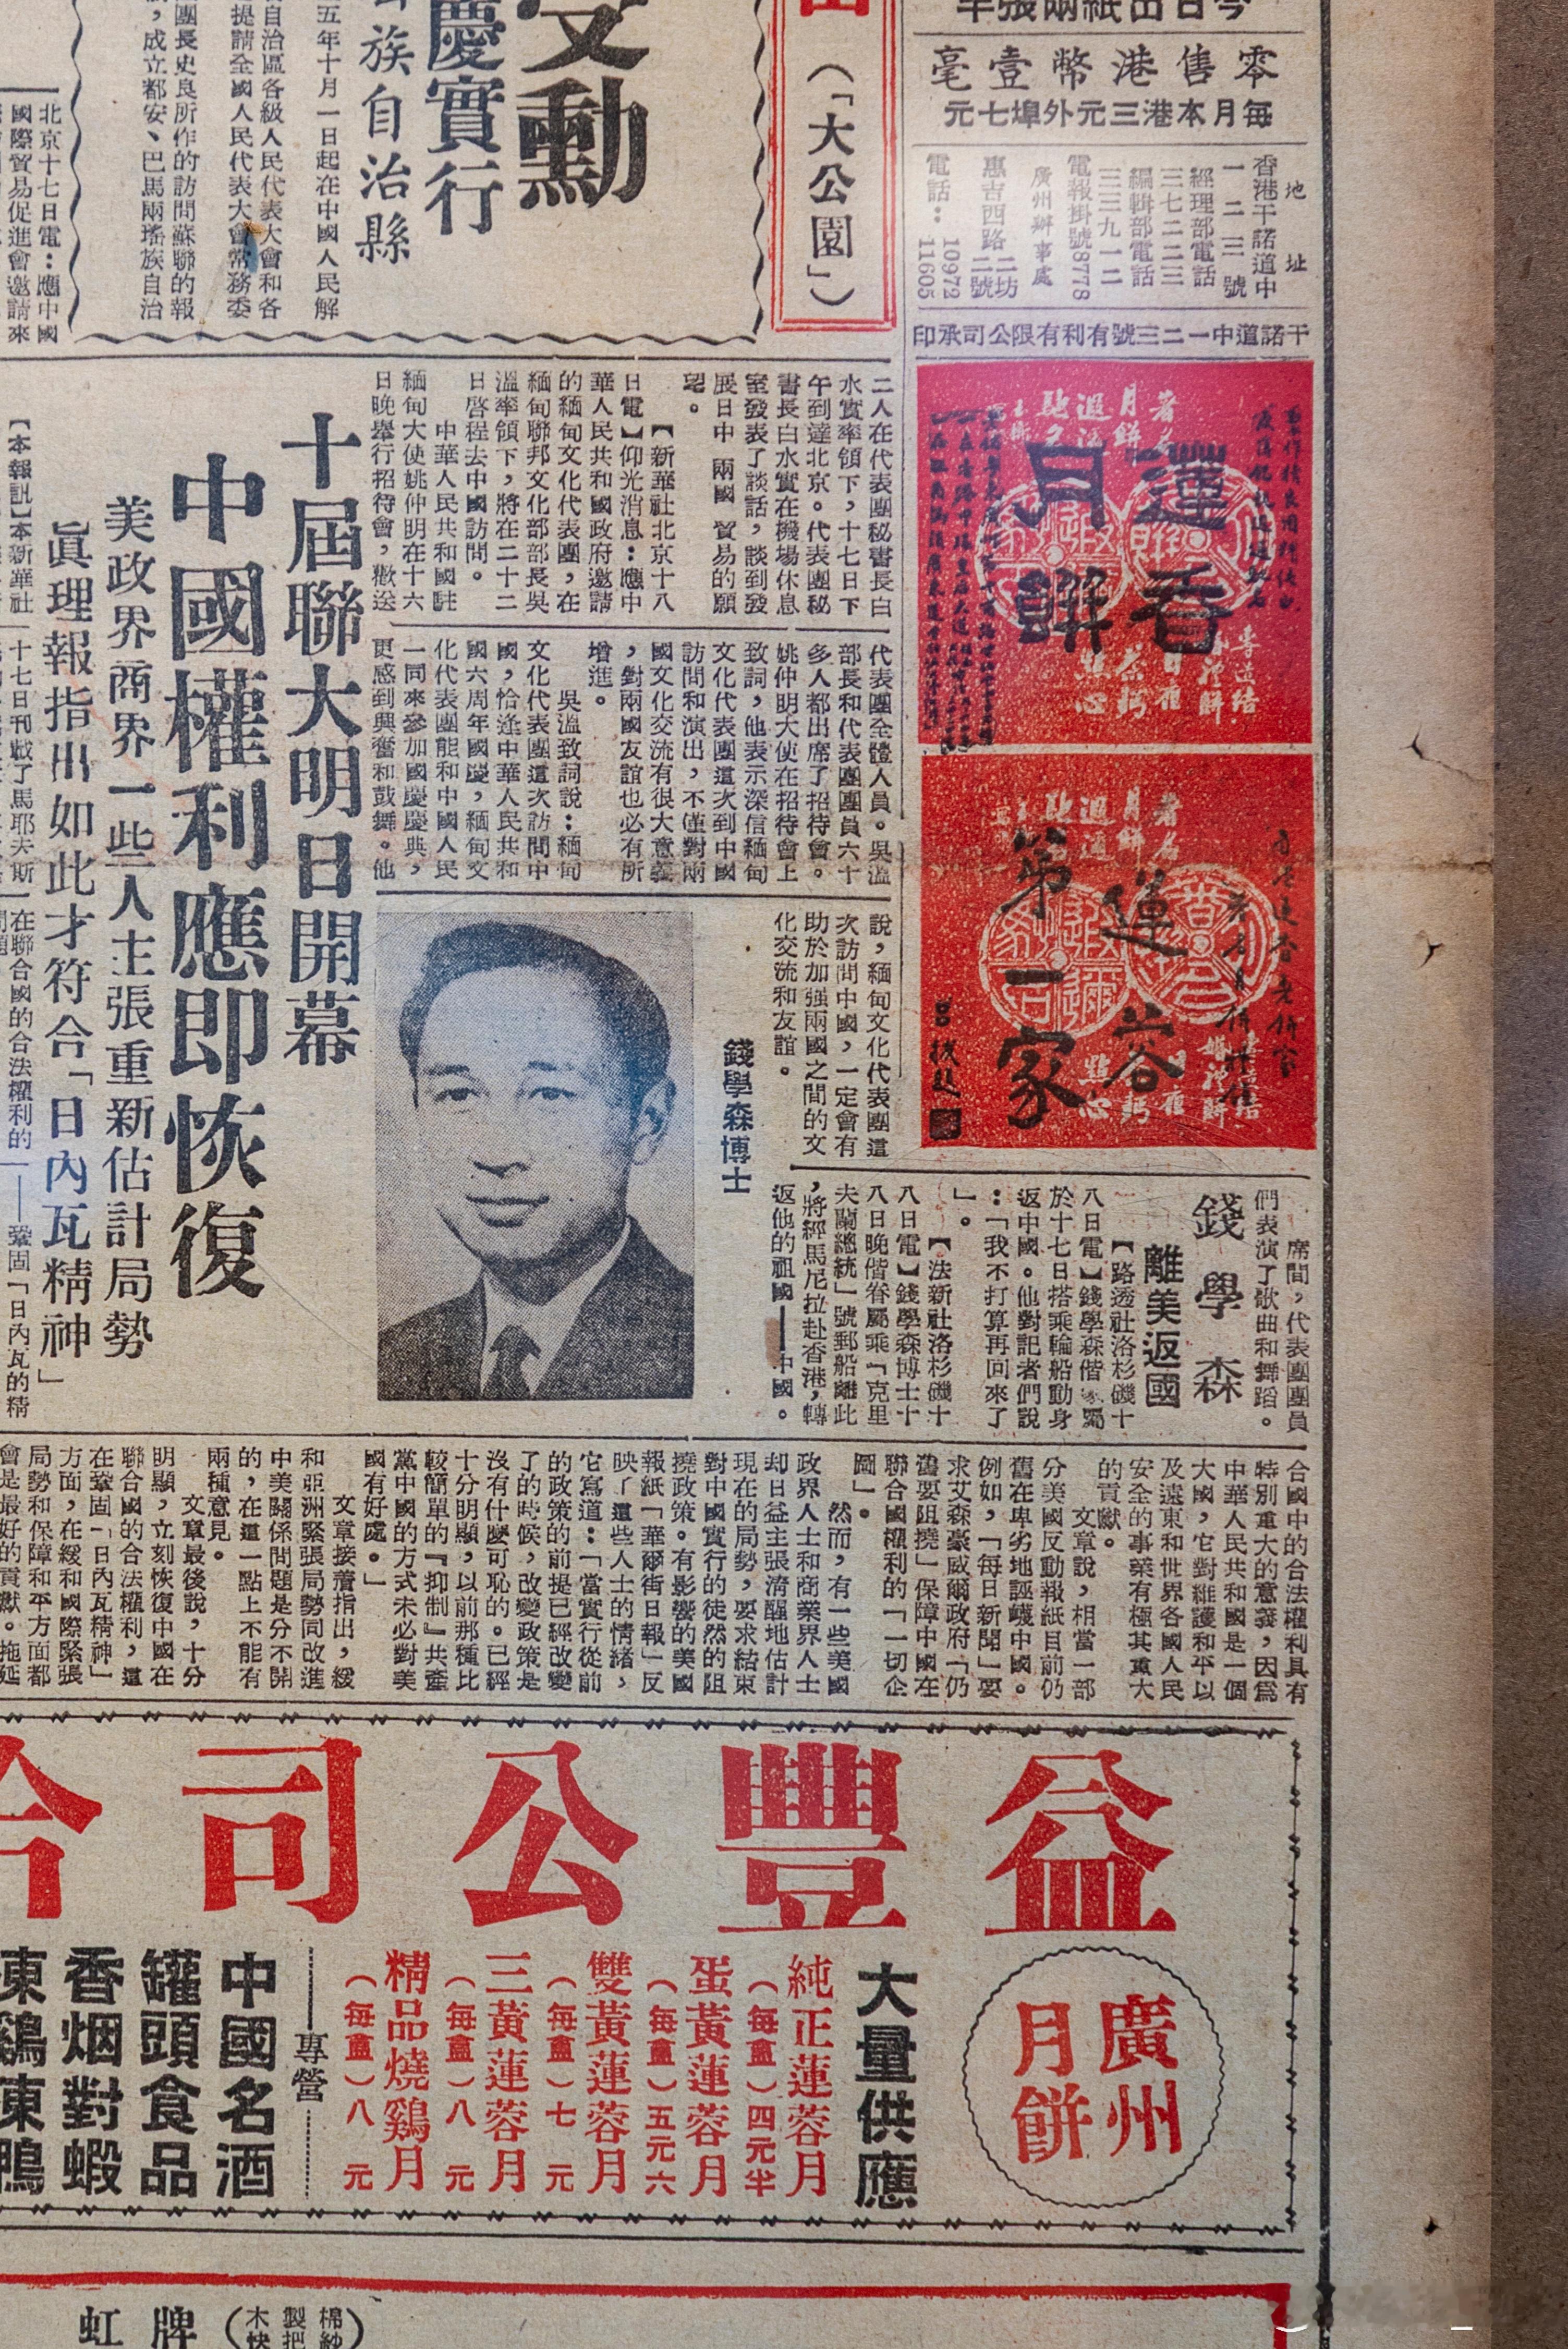 今日出紙兩張半
零售港幣壹毫
每月本港三元外埠七元
地址
香港干諾道中
一二三號
經理部電話
三七二二三
編輯部電話
三三九一二
電報掛號8778
廣州辦事處
惠吉西路二坊
二號
電話：10972
11605
干諾道中一二三號有利有限公司承印
蓮香
月餅
蓮蓉
第一家
（「大公園」）
受勳
慶實行
族自治縣
五年十月一日起在中國人民解
自治區各級人民代表大會和各
提請全國人民代表大會常務委
團長史良所作的訪問蘇聯的報
，成立都安、巴馬兩瑤族自治
北京十七日電：應中國
國際貿易促進會邀請來
二人在代表團秘書長白
水實率領下，十七日下
午到達北京。代表團秘
書長白水實在機場休息
室發表了談話，談到發
展日中兩國貿易的願
望。
【新華社北京十八
日電】仰光消息：應中
華人民共和國政府邀請
的緬甸文化代表團，在
緬甸聯邦文化部部長吳
溫率領下，將在二十二
日啓程去中國訪問。
中華人民共和國駐
緬甸大使姚仲明在十六
日晚舉行招待會，歡送
代表團全體人員。吳溫
部長和代表團團員六十
多人都出席了招待會。
姚仲明大使在招待會上
致詞，他表示深信緬甸
文化代表團這次到中國
訪問和演出，不僅對兩
國文化交流有很大意義
，對兩國友誼也必有所
增進。
吳溫致詞說：緬甸
文化代表團這次訪問中
國，恰逢中華人民共和
國六周年國慶，緬甸文
化代表團能和中國人民
一同來參加國慶慶典，
更感到興奮和鼓舞。他
說，緬甸文化代表團這
次訪問中國，一定會有
助於加强兩國之間的文
化交流和友誼。
席間，代表團團員
們表演了歌曲和舞蹈。
錢學森
離美返國
【路透社洛杉磯十
八日電】錢學森偕家屬
於十七日搭乘輪船動身
返中國。他對記者們說
：「我不打算再回來了
」。
【法新社洛杉磯十
八日電】錢學森博士十
八日晚偕眷屬乘「克里
夫蘭總統」號郵船離此
，將經馬尼拉赴香港，轉
返他的祖國——中國。
錢學森博士
十屆聯大明日開幕
中國權利應即恢復
美政界商界一些人主張重新估計局勢
眞理報指出如此才符合「日內瓦精神」
【本報訊】本新華社
十七日刊載了馬耶夫斯
在聯合國的合法權利的
——鞏固「日內瓦的精
合國中的合法權利具有
特別重大的意義，因爲
中華人民共和國是一個
大國，它對維護和平以
及遠東和世界各國人民
安全的事業有極其重大
的貢獻。
文章說，相當一部
分美國反動報紙目前仍
舊在卑劣地誣衊中國。
例如，「每日新聞」要
求艾森豪威爾政府「仍
舊要阻撓」保障中國在
聯合國權利的「一切企
圖」。
然而，有一些美國
政界人士和商業界人士
却日益主張淸醒地估計
現在的局勢，要求結束
對中國實行的徒然的阻
撓政策。有影響的美國
報紙「華爾街日報」反
映了這些人士的情緒，
它寫道：「當實行從前
的政策的前提已經改變
了的時候，改變政策是
沒有什麼可恥的。已經
十分明顯，以前那種比
較簡單的『抑制』共產
黨中國的方式未必對美
國有好處。」
文章接着指出，緩
和亞洲緊張局勢同改進
中美關係問題是分不開
的，在這一點上不能有
兩種意見。
文章最後說，十分
明顯，立刻恢復中國在
聯合國的合法權利，這
在鞏固「日內瓦精神」
方面，在緩和國際緊張
局勢和保障和平方面都
會是最好的貢獻。拖延
益豐公司
廣州
月餅
大量供應
純正蓮蓉月（每盒）四元半
蛋黃蓮蓉月（每盒）五元六
雙黃蓮蓉月（每盒）七元
三黃蓮蓉月（每盒）八元
精品燒鷄月（每盒）八元
專營
中國名酒
罐頭食品
香烟對蝦
凍鷄凍鴨
虹牌